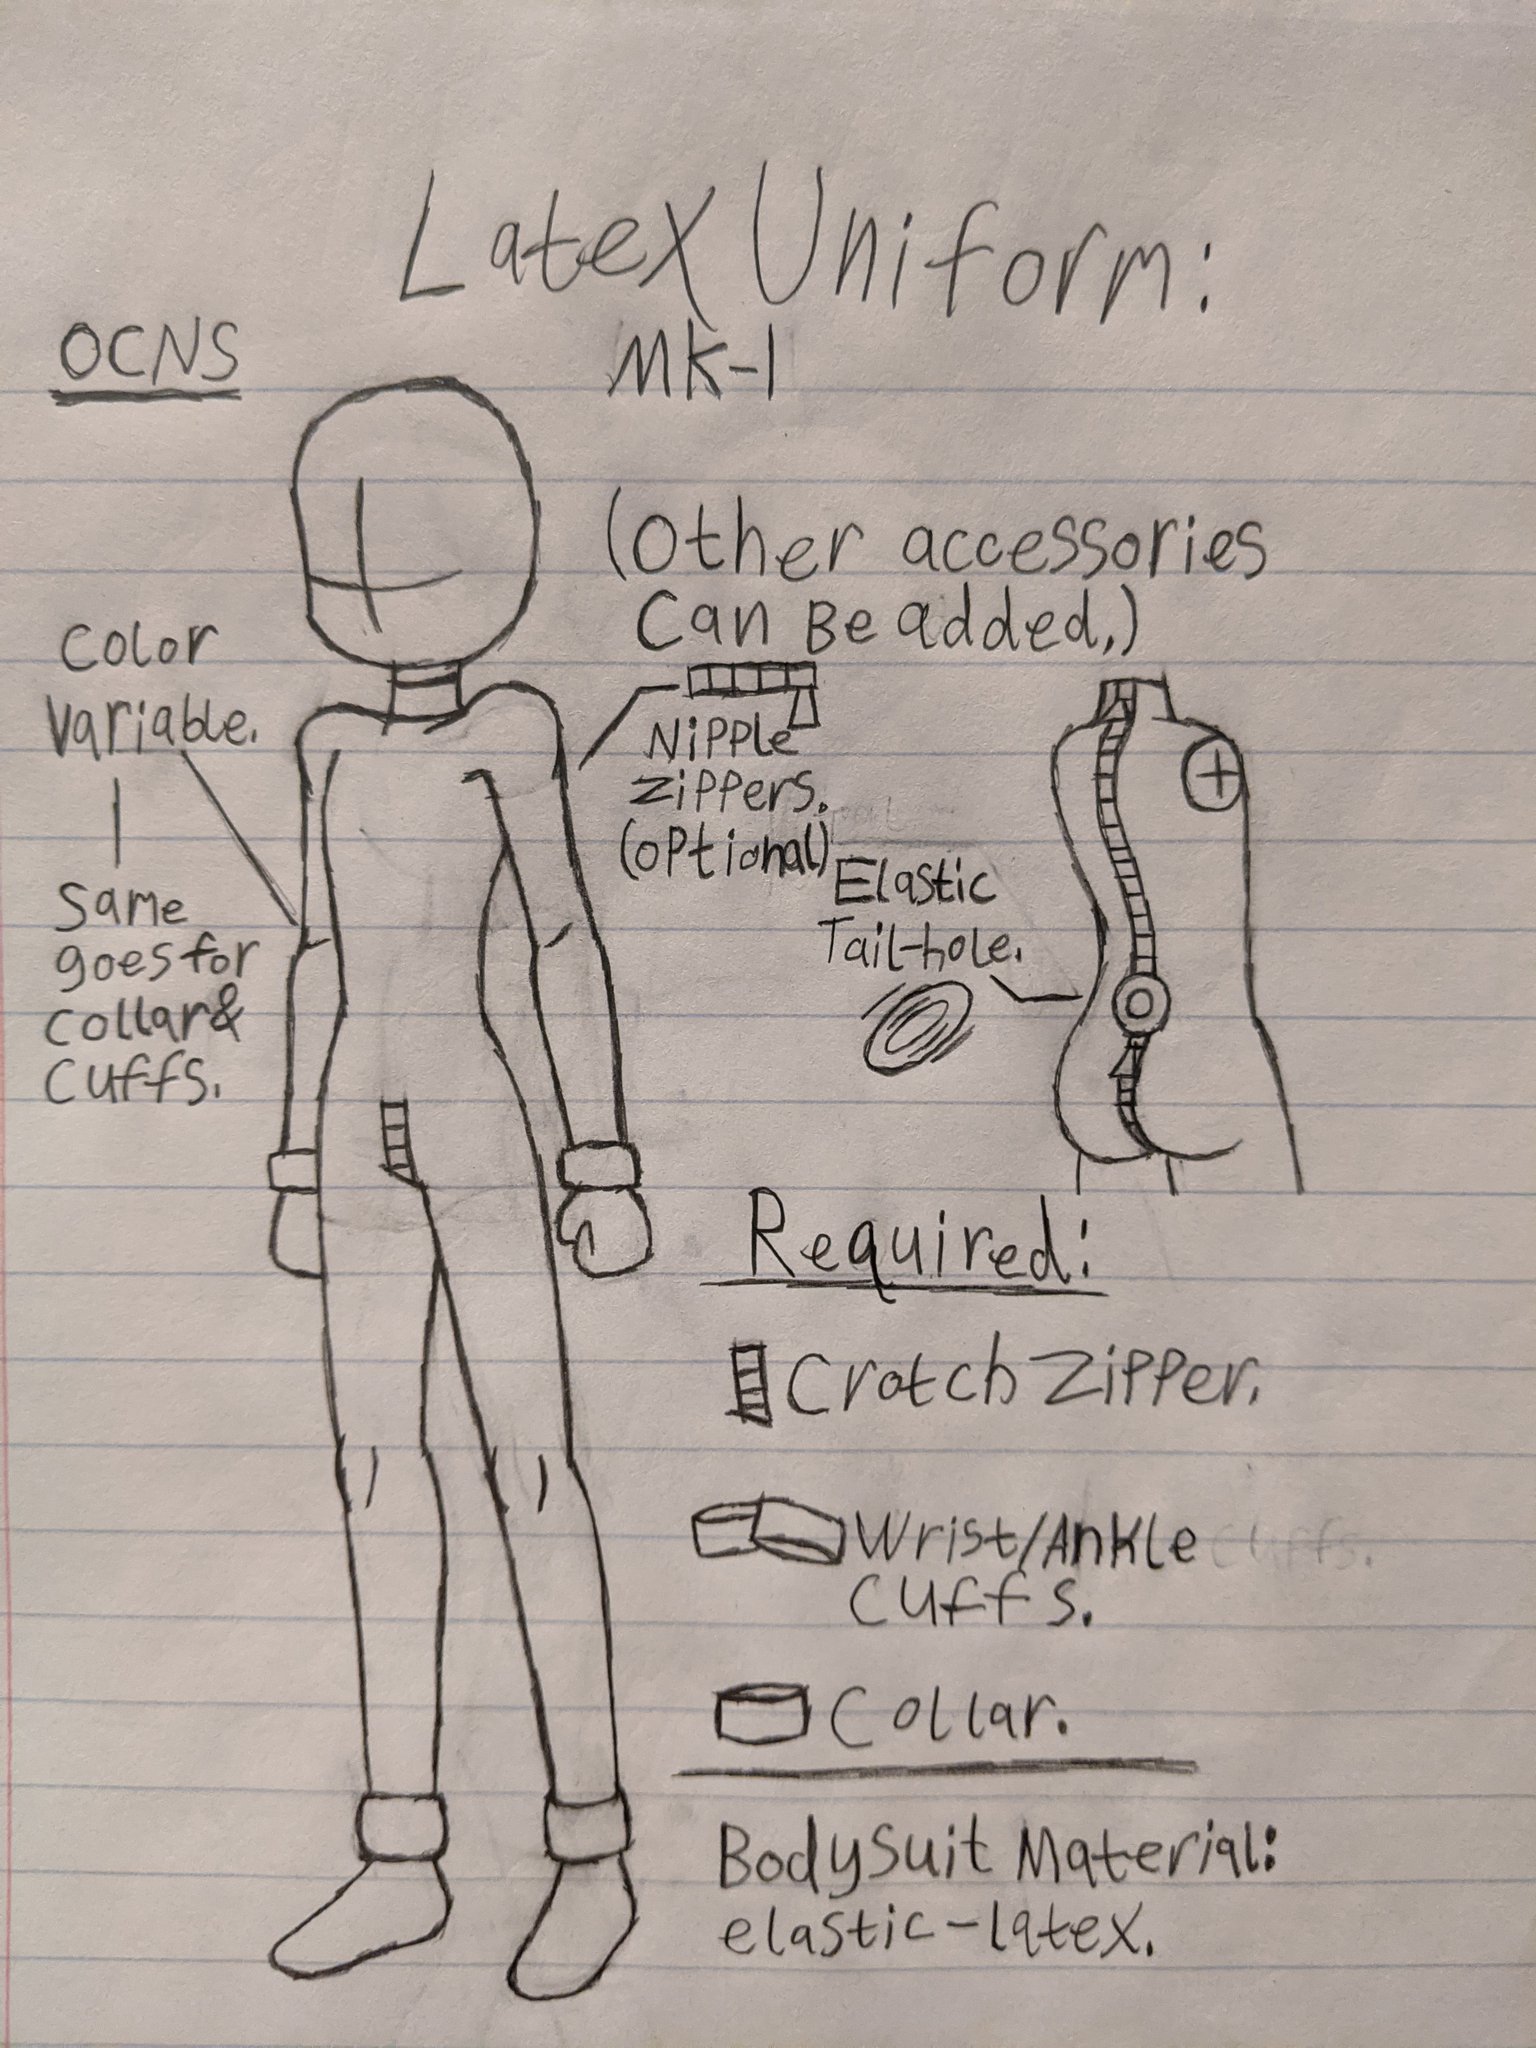 Latex Uniform:
MK-1
OCNS
(Other accessories
Can Be added.)
Color
Variable.
Same
goes for
Collar&
Cuffs.
Nipple
Zippers.
(optional)
Elastic
Tail-hole.
Required:
Crotch Zipper.
Wrist/Ankle
Cuffs.
Collar.
Bodysuit Material:
elastic-latex.